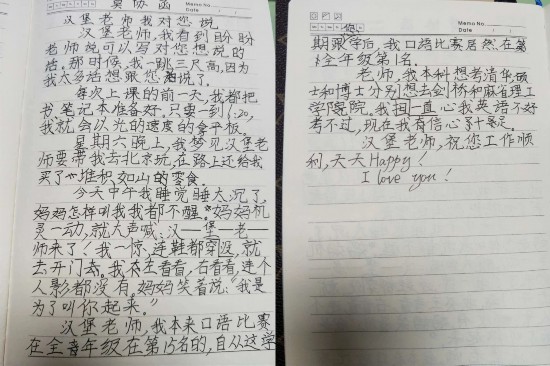 莫协函
Memo No.
Date / /
汉堡老师我对您说
汉堡老师,我看到盼盼
老师说可以写对您想说的
话。那时候,我一跳三尺高,因为
我太多话想跟您说了。
每次上课的前一天,我都把
书、笔记本准备好。只要一到6:20,
我就会以光的速度的拿平板。
星期六晚上,我梦见汉堡老
师要带我去北京玩,在路上还给我
买了堆积如山的零食。
今天中午我睡觉睡太沉了,
妈妈怎样叫我我都不醒。妈妈机
灵一动,就大声喊:汉—堡—老—
师来了!我一惊,连鞋都穿没,就
去开门去。我左看看,右看看,连个
人影都没有,妈妈笑着说:"我是
为了叫你起来。"
汉堡老师,我本来口语比赛
在全年级在第15名的,自从这学
Memo No.
Date / /
期跟您学后,我口语比赛居然在第
全年级第1名。
老师,我本科想考清华,硕
士和博士分别想去剑桥和麻省理工
学院。我担一直心我英语不好
考不过,现在我有信心了十足。
汉堡老师,祝您工作顺
利,天天Happy!
I love you!